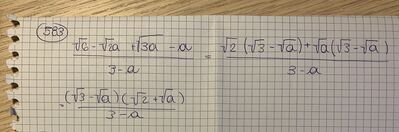 583
(√6 - √2a + √3a - a)/(3-a) = (√2 (√3 - √a) + √a(√3 - √a))/(3-a)
= ((√3 - √a)(√2 + √a))/(3-a)